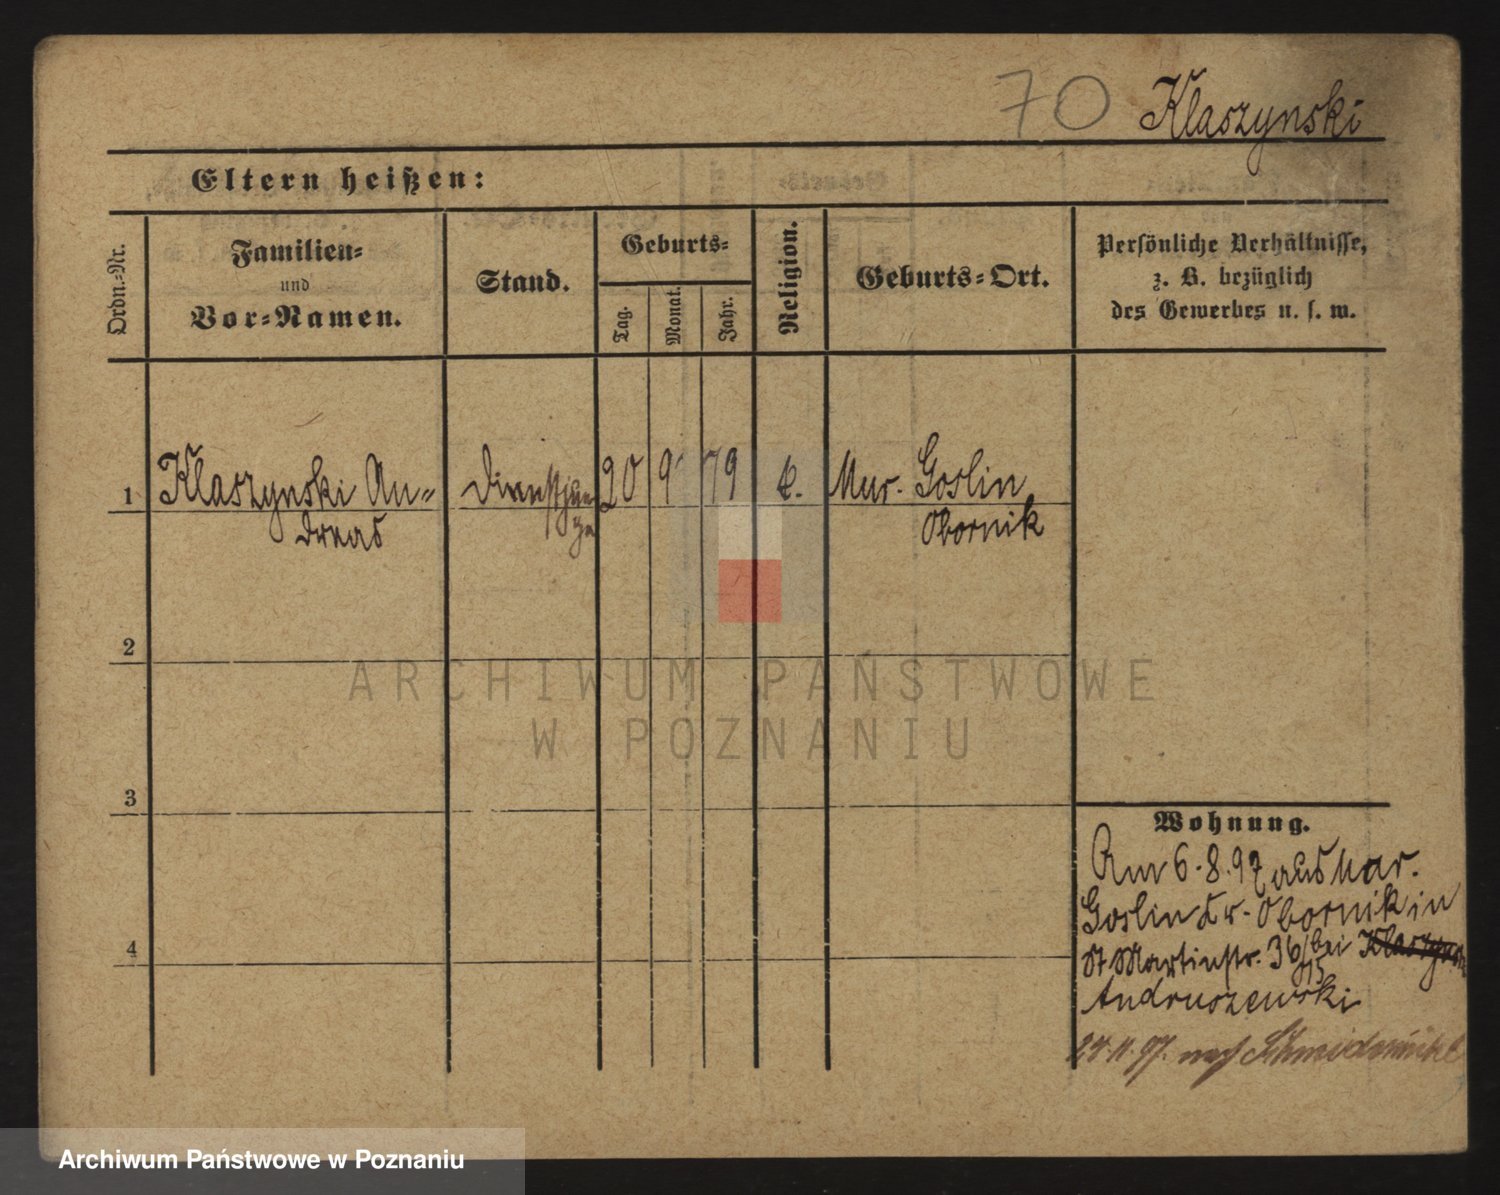 70 Klaszynski
Eltern heißen:
Ordn.-Nr.
Familien-
und
Vor-Namen.
Stand.
Geburts-
Tag.
Monat.
Jahr.
Religion.
Geburts-Ort.
Persönliche Verhältnisse,
z. B. bezüglich
des Gewerbes u. s. w.
1 Klaszynski An- Dienstjun 20 9 79 k. Mur. Goslin
dreas ge Obornik
2
3
4
Wohnung.
Am 6.8.97 aus Mur.
Goslin Kr. Obornik in
St Martinstr. 36/15 bei
Andruszewski
24.11.97. nach
ARCHIWUM PAŃSTWOWE
W POZNANIU
Archiwum Państwowe w Poznaniu